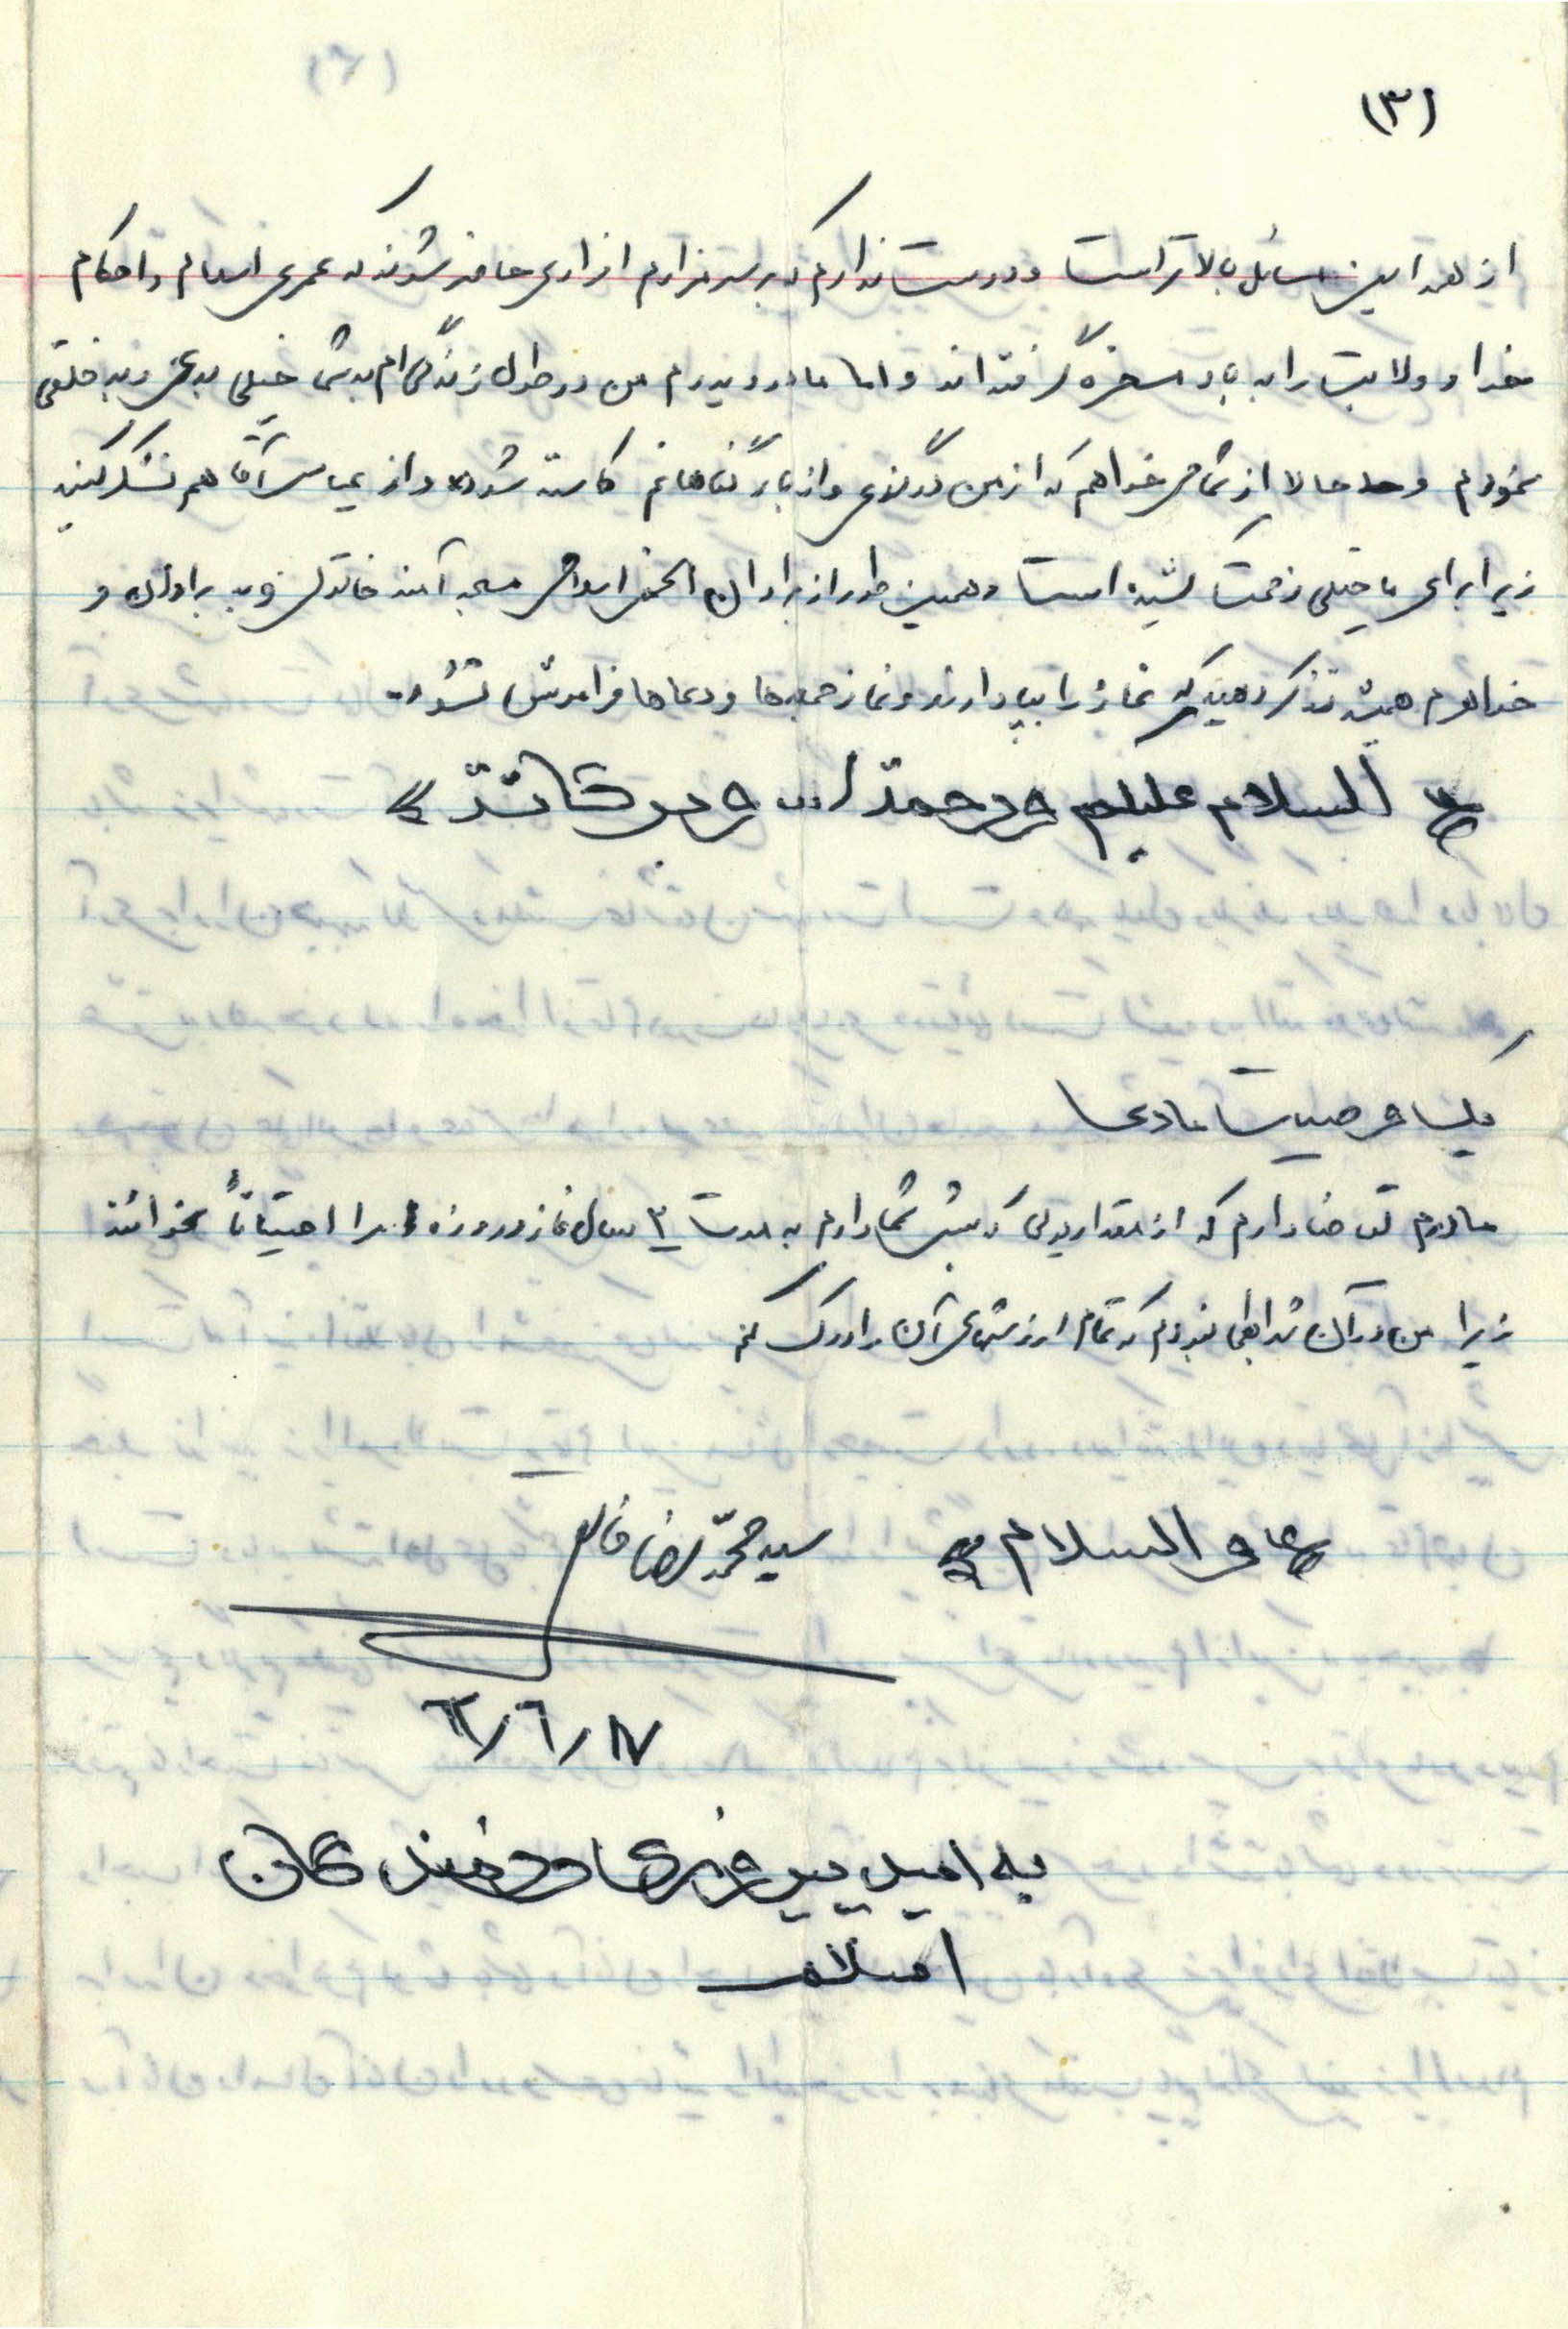 (۳)
از همه این مسائل بالاتر است و دوست ندارم که بر سر مزارم افرادی حاضر شوند که عمری اسلام و احکام
خدا و ولایت را به باد مسخره گرفته اند و اما مادر و پدرم من در طول زندگی ام به شما خیلی بدی و بد خلقی
نمودم و حالا از شما می خواهم که از من در گذری و از بار گناهانم کاسته شود و از عباس آقا هم تشکر کنید
زیرا برای ما خیلی زحمت کشیده است و همین طور از برادران انجمن اسلامی مسجد و به برادران و
خواهرم همیشه تذکر دهید که نماز را بپا دارند و نماز جمعه ها و دعاها فراموش نشود.
السلام علیکم و رحمة ا... و برکاتة
یک وصیت مادی
مادرم تقاضا دارم که از مقدار پولی که پیش شما دارم به مدت ۳ سال نماز و روزه را احتیاتاً بخوانند
زیرا من در آن شرایطی نبودم که تمام ارزشهای آن را درک کنم
والسلام سید محمد رضا
۶۲/۶/۱۷
به امید پیروزی رزمندگان
اسلام